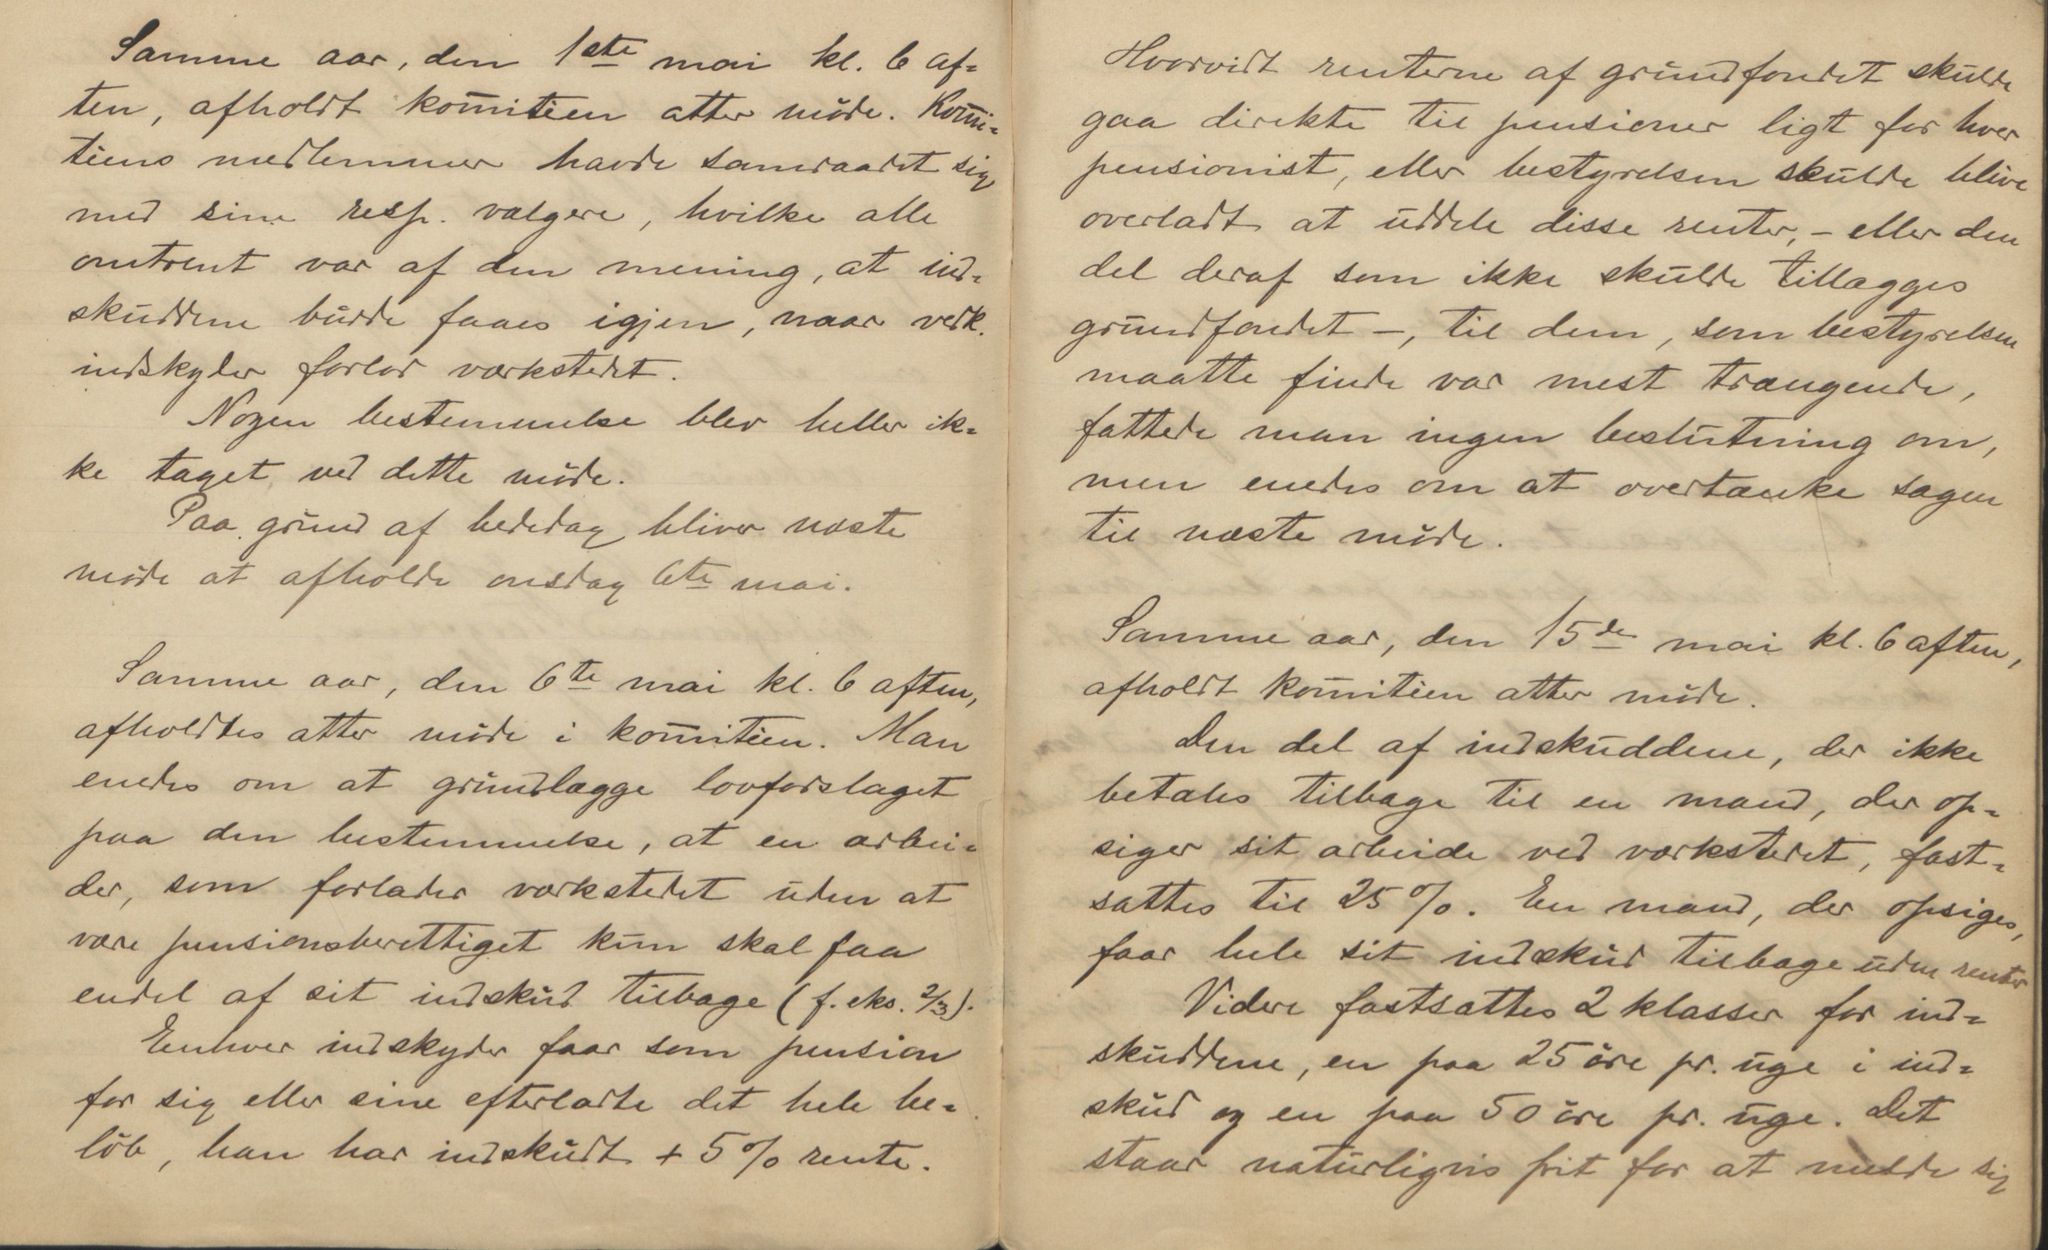 Samme aar, den 1ste mai kl. 6 af-
ten, afholdt komitéen atter møde. Komi-
téens medlemmer havde samraadet sig
med sine resp. vælgere, hvilke alle
omtrent var af den mening, at ind-
skuddene burde faaes igjen, naar vedk.
indskyder forlod værkstedet.
Nogen bestemmelse blev heller ik-
ke taget ved dette møde.
Paa grund af bededag bliver næste
møde at afholde onsdag 6te mai.
Samme aar, den 6te mai kl. 6 aften,
afholdtes atter møde i komitéen. Man
enedes om at grundlægge lovforslaget
paa den bestemmelse, at en arbei-
der, som forlader værkstedet uden at
være pensionsberettiget kun skal faa
endel af sit indskud tilbage (f. eks. 2/3).
Enhver indskyder faar som pension
for sig eller sine efterladte det hele be-
løb, han har indskudt + 5% rente.
Hvorvidt renterne af grundfondet skulde
gaa direkte til pensioner ligt for hver
pensionist, eller bestyrelsen skulde blive
overladt at uddele disse renter, - eller den
del deraf som ikke skulde tillægges
grundfondet -, til dem, som bestyrelsen
maatte finde var mest trængende,
fattede man ingen beslutning om,
men enedes om at overtænke sagen
til næste møde.
Samme aar, den 15de mai kl. 6 aften,
afholdt komitéen atter møde.
Den del af indskuddene, der ikke
betales tilbage til en mand, der op-
siger sit arbeide ved værkstedet, fast-
sattes til 25%. En mand, der opsiges,
faar hele sit indskud tilbage uden renter
Videre fastsattes 2 klasser for ind-
skuddene, en paa 25 øre pr. uge i ind-
skud og en paa 50 øre pr. uge. Det
staar naturligvis frit for at melde sig